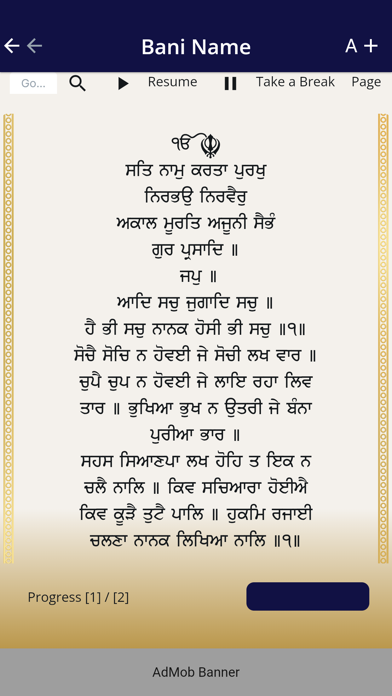 Bani Name
A +
Go...
Resume
Take a Break
Page
ੴ
ਸਤਿ ਨਾਮੁ ਕਰਤਾ ਪੁਰਖੁ
ਨਿਰਭਉ ਨਿਰਵੈਰੁ
ਅਕਾਲ ਮੂਰਤਿ ਅਜੂਨੀ ਸੈਭੰ
ਗੁਰ ਪ੍ਰਸਾਦਿ ॥
ਜਪੁ ॥
ਆਦਿ ਸਚੁ ਜੁਗਾਦਿ ਸਚੁ ॥
ਹੈ ਭੀ ਸਚੁ ਨਾਨਕ ਹੋਸੀ ਭੀ ਸਚੁ ॥੧॥
ਸੋਚੈ ਸੋਚਿ ਨ ਹੋਵਈ ਜੇ ਸੋਚੀ ਲਖ ਵਾਰ ॥
ਚੁਪੈ ਚੁਪ ਨ ਹੋਵਈ ਜੇ ਲਾਇ ਰਹਾ ਲਿਵ
ਤਾਰ ॥ ਭੁਖਿਆ ਭੁਖ ਨ ਉਤਰੀ ਜੇ ਬੰਨਾ
ਪੁਰੀਆ ਭਾਰ ॥
ਸਹਸ ਸਿਆਣਪਾ ਲਖ ਹੋਹਿ ਤ ਇਕ ਨ
ਚਲੈ ਨਾਲਿ ॥ ਕਿਵ ਸਚਿਆਰਾ ਹੋਈਐ
ਕਿਵ ਕੂੜੈ ਤੁਟੈ ਪਾਲਿ ॥ ਹੁਕਮਿ ਰਜਾਈ
ਚਲਣਾ ਨਾਨਕ ਲਿਖਿਆ ਨਾਲਿ ॥੧॥
Progress [1] / [2]
AdMob Banner